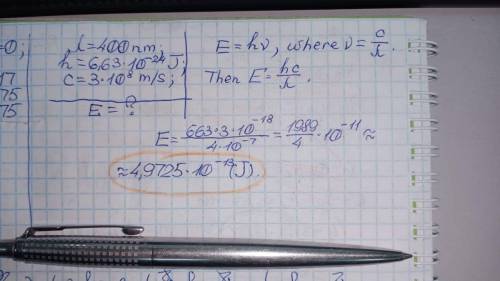 =0;
λ=400nm;
h=6,63·10⁻²⁴J;
c=3·10⁸ m/s;
17
75
E=?
75
E=hν, where ν=c/λ.
Then E=hc/λ.
E=663·3·10⁻¹⁸/4·10⁻⁷=1989/4·10⁻¹¹≈
≈4,9725·10⁻¹⁹(J).